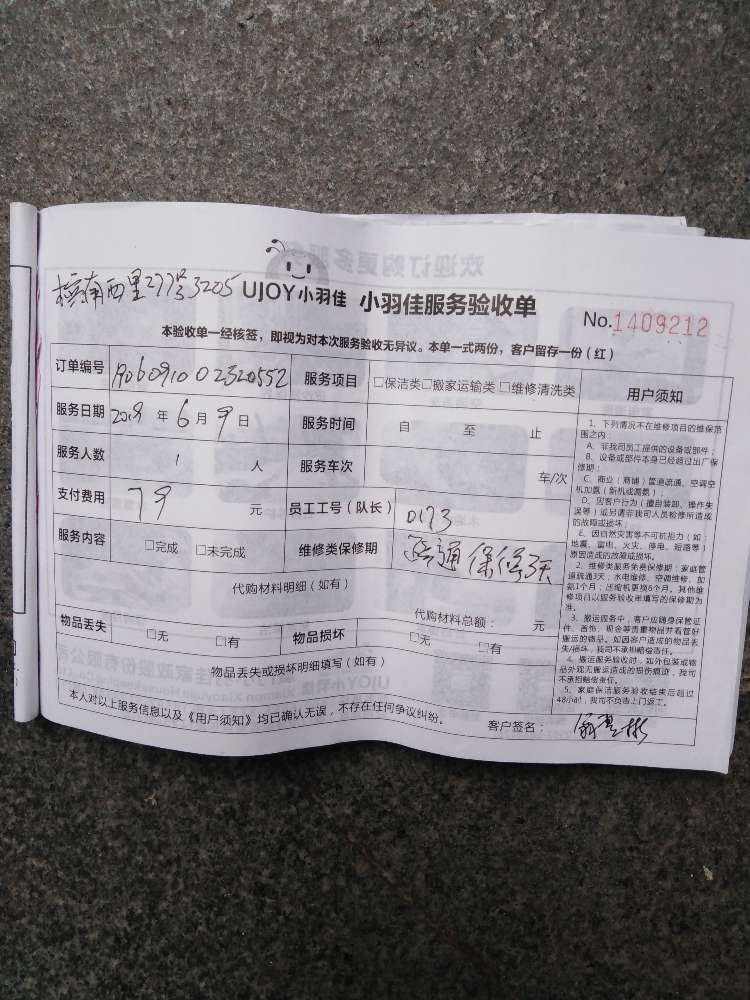 槟榔西里277号3205
UJOY小羽佳 小羽佳服务验收单
No.1409212
本验收单一经核签，即视为对本次服务验收无异议。本单一式两份，客户留存一份（红）
订单编号 1906091002320552 服务项目 □保洁类□搬家运输类□维修清洗类
服务日期 2019 年 6 月 9 日 服务时间 自 至 止
服务人数 1 人 服务车次 车/次
支付费用 79 元 员工工号（队长） 0173
服务内容 □完成 □未完成 维修类保修期 疏通保修3天
代购材料明细（如有）
代购材料总额： 元
物品丢失 □无 □有 物品损坏 □无 □有
物品丢失或损坏明细填写（如有）
本人对以上服务信息以及《用户须知》均已确认无误，不存在任何争议纠纷。
客户签名：
用户须知
1、下列情况不在维修项目的维保范
围之内：
A、非我司员工提供的设备或部件；
B、设备或部件本身已经超过出厂保
修期；
C、商业（商铺）管道疏通、空调空
机加氨（新机或漏氨）；
D、因客户行为（擅自装卸、操作失
误等）或另请非我司人员检修所造成
的故障或损坏；
E、因自然灾害等不可抗拒力（如：
地震、雷电、火灾、停电、短路等）
原因造成的故障或损坏。
2、维修类服务免费保修期：家庭管
道疏通3天；水电维修、空调维修、加
氨1个月；压缩机更换6个月。其他维
修项目以服务验收单填写的保修期为
准。
3、搬运服务中，客户应随身保管证
件、首饰、现金等贵重物品并看管好
搬运的物品。如因客户造成的物品丢
失/损坏，我司不承担赔偿责任。
4、搬运服务验收时，如外包装或物
品外观无搬运造成的损伤痕迹，我司
不承担赔偿责任。
5、家庭保洁服务验收结束后超过
48小时，我司不负责上门返工。
欢迎订购更多服务